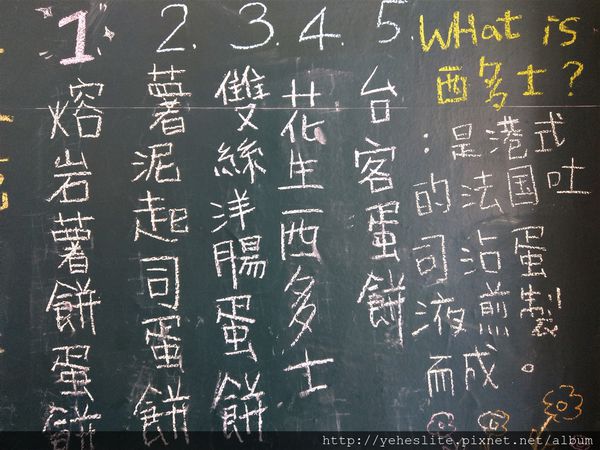 1.
熔岩薯餅蛋餅
2.
薯泥起司蛋餅
3.
雙絲洋腸蛋餅
4.
花生西多士
5.
台客蛋餅
WHat is
西多士?
:是港式
的法国吐
司沾蛋
液煎製
而成。
http://yeheslite.pixnet.net/album